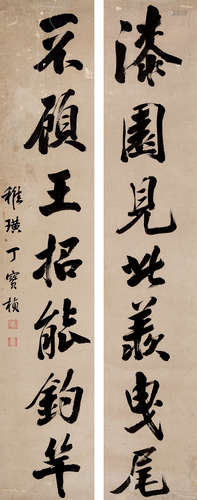 漆園見此羨曳尾
不顧王招能釣竿
稚璜丁寶楨